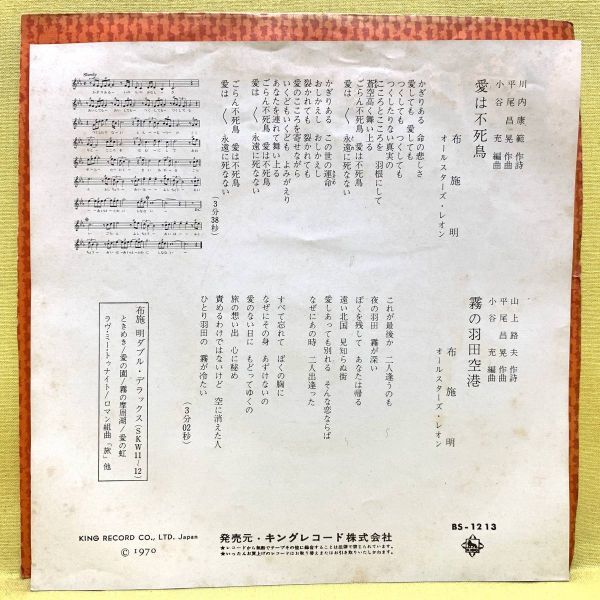 愛は不死鳥
川内康範 作詩
平尾昌晃 作曲
小谷充 編曲
布施明
オールスターズ・レオン
かぎりある 命の悲しさ
愛しても 愛しても
つくしても つくしても
つくしたりない真実の
こころとこころを 羽根にして
蒼空高く舞い上る
ごらん不死鳥 愛は不死鳥
愛は〱 永遠に死なない
かぎりある この世の運命
おしかえし おしかえし
裂かれても 裂かれても
愛のこころを寄せながら
いくどもいくども よみがえり
あなたを連れて舞い上る
ごらん不死鳥 愛は不死鳥
愛は〱 永遠に死なない
ごらん不死鳥 愛は不死鳥
愛は〱 永遠に死なない
(3分38秒)
霧の羽田空港
山上路夫 作詩
平尾昌晃 作曲
小谷充 編曲
布施明
オールスターズ・レオン
これが最後か 二人逢うのも
夜の羽田 霧が深い
ぼくを残して あなたは帰る
遠い北国 見知らぬ街
愛しあっても別れる そんな恋ならば
なぜにあの時 二人出逢った
すべて忘れて ぼくの胸に
なぜにその身 あずけないの
愛のない日に もどってゆくの
旅の想い出 心に秘め
責めるわけではないけど 空に消えた人
ひとり羽田の 霧が冷たい
(3分02秒)
布施明ダブル・デラックス(SKW11~12)
ときめき/愛の園/霧の摩周湖/愛の虹
ラヴ・ミー・トゥナイト/ロマン組曲「旅」他
KING RECORD CO., LTD. Japan
© 1970
発売元・キングレコード株式会社
★レコードから無断でテープその他に録音することは法律で禁じられています。
★いったんお買上げのレコードはお取り替えまたはお引き取りいたしかねます。
BS-1213